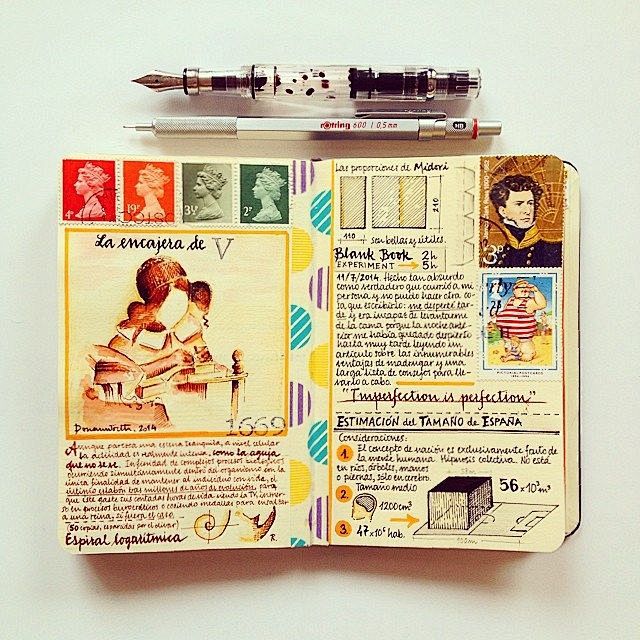 rotring 600 | 0,5 mm
HB
4P
19P
3½P
2P
1918
La encajera de V
Donaumotti, 2014
1669
Aunque parezca una escena tranquila, a nivel celular
la actividad es realmente intensa, como la aguja
que no se ve. Infinidad de complejos procesos químicos
ocurriendo simultáneamente dentro del organismo con la
única finalidad de mantener al individuo con vida, el
último eslabón tras millones de años de evolución, para
que éste gaste sus contadas horas de vida viendo la TV, inmer-
so en procesos burocráticos o cosiendo medallas para ensalzar
a una reina, si fuera el caso.
(50 copias, esparcidas por el olivar)
Espiral logarítmica
R.
Las proporciones de Midori
210
110
son bellas y útiles.
Blank Book 2h
EXPERIMENT → 5h
11/7/2014. Hecho tan absurdo
como verdadero que ocurrió a mi
persona y no puedo hacer otra co-
sa que escribirlo: me desperté tar-
de y era incapaz de levantarme
de la cama porque la noche ante-
rior me había quedado despierto
hasta muy tarde leyendo un
artículo sobre las innumerables
ventajas de madrugar y una
larga lista de consejos para lle-
varlo a cabo.
3P
PICTORIAL POSTCARDS
"Imperfection is perfection"
ESTIMACIÓN del TAMAÑO de ESPAÑA
Consideraciones:
1. El concepto de nación es exclusivamente fruto de
la mente humana. Hipnosis colectiva. No está
en ríos, árboles, manos
o piernas, sólo en cerebro.
2. Tamaño medio
1200cm³
3. 47x10⁶ hab.
56 x10³m³